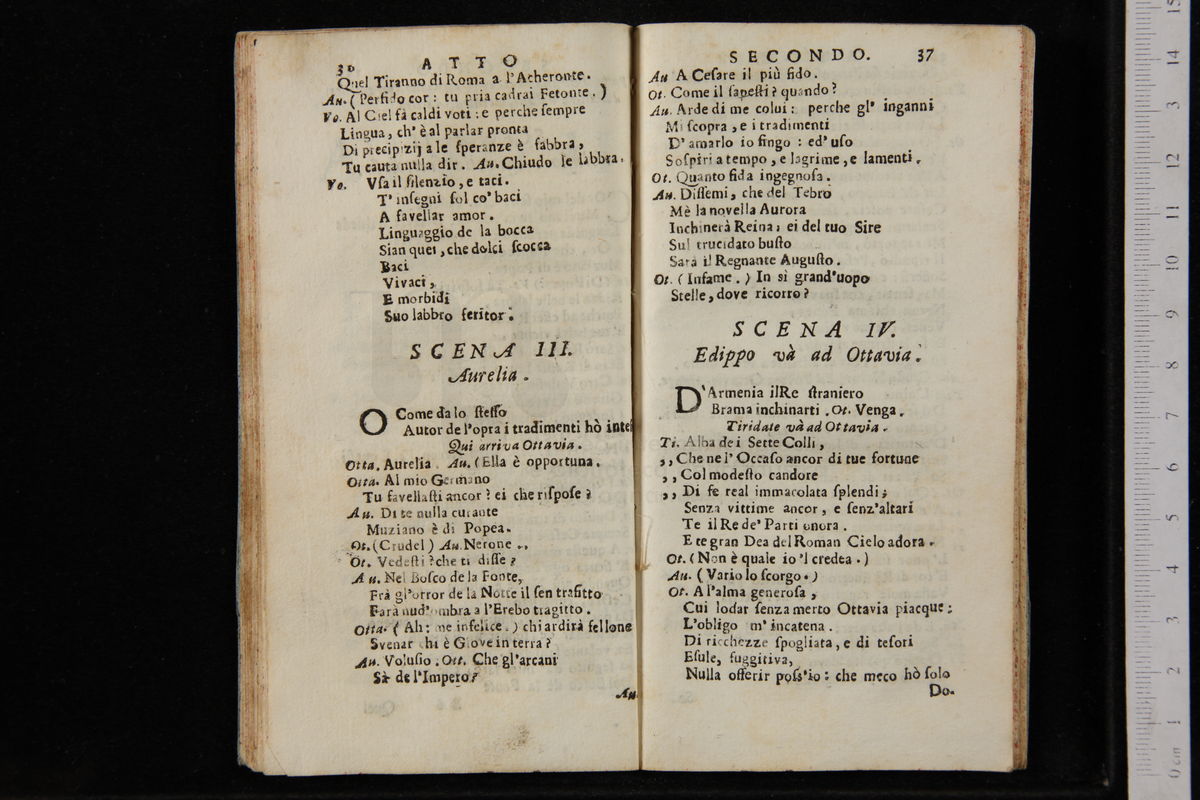 30 ATTO
Quel Tiranno di Roma a l'Acheronte.
Au. (Perfido cor: tu pria cadrai Fetonte.)
Vo. Al Ciel fà caldi voti: e perche ſempre
Lingua, ch'è al parlar pronta
Di precipizij a le ſperanze è fabbra,
Tu cauta nulla dir. Au. Chiudo le labbra.
Vo. Vſa il ſilenzio, e taci.
T' inſegni ſol co' baci
A favellar amor.
Linguaggio de la bocca
Sian quei, che dolci ſcocca
Baci
Vivaci,
E morbidi
Suo labbro feritor.
SCENA III.
Aurelia.
O Come da lo ſteſſo
Autor de l'opra i tradimenti hò inteſ
Qui arriva Ottavia.
Otta. Aurelia. Au. (Ella è opportuna.
Otta. Al mio Germano
Tu favellaſti ancor? ei che riſpoſe?
Au. Di te nulla curante
Muziano è di Popea.
Ot. (Crudel) Au. Nerone..
Ot. Vedeſti? che ti diſſe?
Au. Nel Boſco de la Fonte,
Frà gl'orror de la Notte il ſen trafitto
Farà nud'ombra a l'Erebo tragitto.
Otta. (Ah: me infelice.) chi ardirà fellone
Svenar chi è Giove in terra?
Au. Voluſio. Ott. Che gl'arcani
Sà de l'Impero?
Au
SECONDO. 37
Au A Ceſare il più fido.
Ot. Come il ſapeſti? quando?
Au. Arde di me colui: perche gl' inganni
Mi ſcopra, e i tradimenti
D' amarlo io fingo: ed' uſo
Soſpiri a tempo, e lagrime, e lamenti.
Ot. Quanto fida ingegnoſa.
Au. Diſſemi, che del Tebro
Mè la novella Aurora
Inchinerà Reina; ei del tuo Sire
Sul trucidato buſto
Sarà il Regnante Auguſto.
Ot. (Infame.) In sì grand'uopo
Stelle, dove ricorro?
SCENA IV.
Edippo và ad Ottavia.
D'Armenia il Re ſtraniero
Brama inchinarti. Ot. Venga.
Tiridate và ad Ottavia.
Ti. Alba dei Sette Colli,
,, Che ne l' Occaſo ancor di tue fortune
,, Col modeſto candore
,, Di fe real immacolata ſplendi;
Senza vittime ancor, e ſenz'altari
Te il Re de' Parti onora.
E te gran Dea del Roman Cielo adora.
Ot. (Non è quale io 'l credea.)
Au. (Vario lo ſcorgo.)
Ot. A l'alma generoſa,
Cui lodar ſenza merto Ottavia piacque;
L'obligo m' incatena.
Di ricchezze ſpogliata, e di teſori
Eſule, fuggitiva,
Nulla offerir poſs'io: che meco hò ſolo
Do.